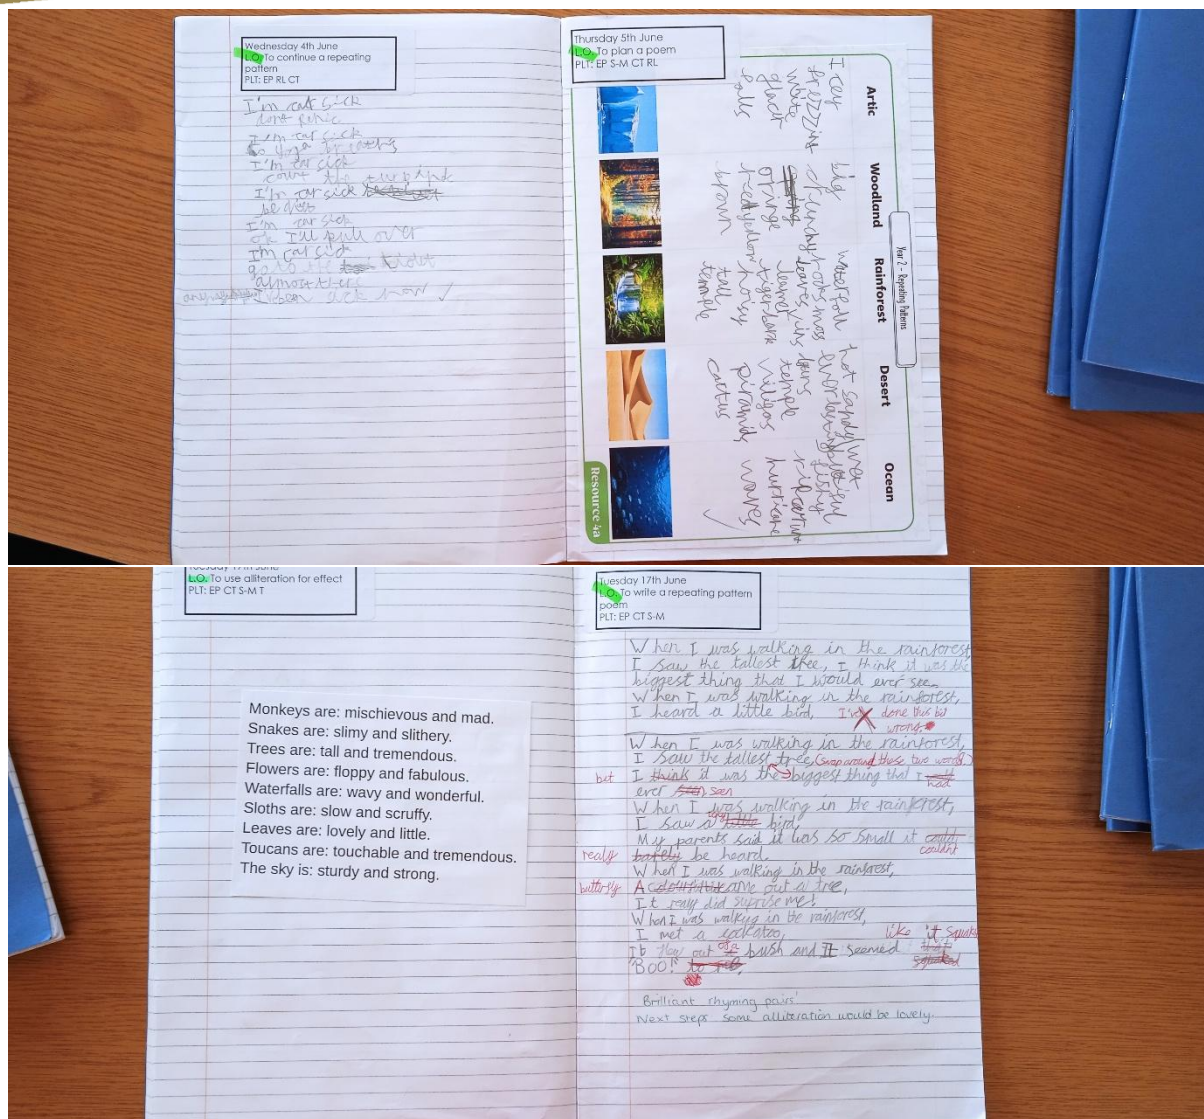 Wednesday 4th June
L.O. To continue a repeating
pattern
PLT: EP RL CT
I'm car sick
dont panic
I'm car sick
I'm car sick
count the
I'm car sick
I'm car sick
ok I'll pull over
I'm car sick
go to the
Thursday 5th June
L.O. To plan a poem
PLT: EP S-M CT RL
Year 2 - Repeating Patterns
Artic
Woodland
Rainforest
Desert
Ocean
I cey
frezzing
white
big
crunchy
leaves
orringe
brown
waterfall
moss
noisy
tall
temple
hot sandy
temple
piramids
cactus
wet
fishy
hurricane
waves
Resource 4a
Tuesday 17th June
L.O. To use alliteration for effect
PLT: EP CT S-M T
Monkeys are: mischievous and mad.
Snakes are: slimy and slithery.
Trees are: tall and tremendous.
Flowers are: floppy and fabulous.
Waterfalls are: wavy and wonderful.
Sloths are: slow and scruffy.
Leaves are: lovely and little.
Toucans are: touchable and tremendous.
The sky is: sturdy and strong.
Tuesday 17th June
L.O. To write a repeating pattern
poem
PLT: EP CT S-M
When I was walking in the rainforest,
I saw the tallest tree, I think it was the
biggest thing that I would ever see.
When I was walking in the rainforest,
I heard a little bird, I've done this bit
wrong.
When I was walking in the rainforest,
I saw the tallest tree, (swap around these two words.)
bet I think it was the biggest thing that I had
ever seen
When I was walking in the rainforest,
I saw a little bird,
My parents said it was so small it couldnt
realy barely be heard.
When I was walking in the rainforest,
butterfly A came out a tree,
It really did suprise me!
When I was walking in the rainforest,
I met a cockatoo,
It flew out of a bush and It seemed like it
"BOO!"
Brilliant rhyming pairs!
Next steps some alliteration would be lovely.